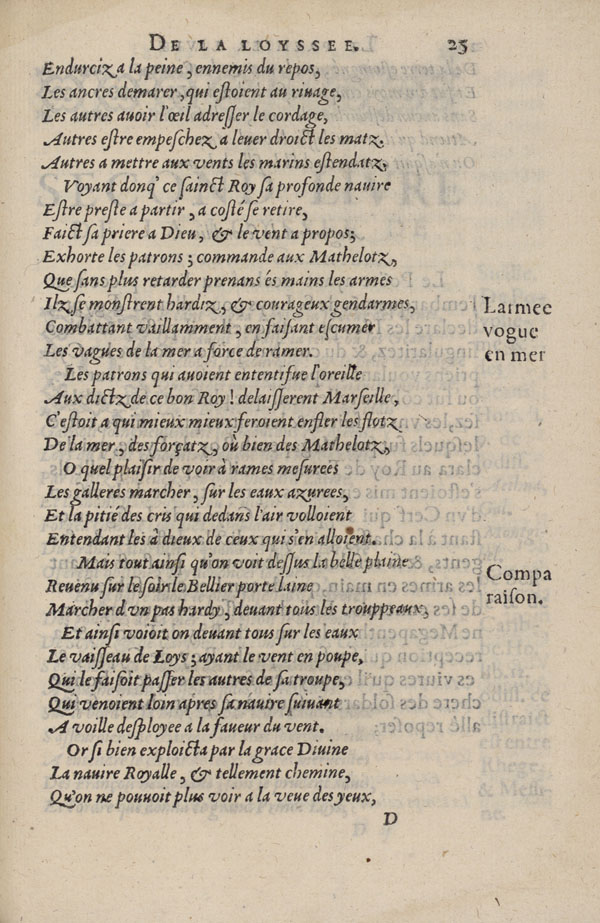 DE LA LOYSSEE. 25
Endurciz a la peine, ennemis du repos,
Les ancres demarer, qui eſtoient au riuage,
Les autres auoir l'œil adreſſer le cordage,
Autres eſtre empeſchez a leuer droict les matz.
Autres a mettre aux vents les marins eſtendatz,
Voyant donq' ce sainct Roy ſa profonde nauire
Eſtre preſte a partir, a coſté ſe retire,
Faict ſa priere a Dieu, & le vent a propos;
Exhorte les patrons; commande aux Mathelotz,
Que ſans plus retarder prenans és mains les armes
Ilz ſe monſtrent hardiz, & courageux gendarmes,
Combattant vaillamment, en faiſant eſcumer
Les vagues de la mer a force de ramer.
L'armee
vogue
en mer
Les patrons qui auoient ententifue l'oreille
Aux dictz de ce bon Roy! delaiſſerent Marſeille,
C'eſtoit a qui mieux mieux feroient enfler les flotz
De la mer, des forçatz, où bien des Mathelotz,
O quel plaiſir de voir à rames meſurees
Les galleres marcher, ſur les eaux azurees,
Et la pitié des cris qui dedans l'air volloient
Entendant les à dieux de ceux qui s'en alloient.
Mais tout ainſi qu'on voit deſſus la belle plaine
Reuenu ſur le ſoir le Bellier porte laine
Marcher d'vn pas hardy, deuant tous les trouppeaux,
Compa
raiſon.
Et ainſi voioit on deuant tous ſur les eaux
Le vaiſſeau de Loys; ayant le vent en poupe,
Qui le faiſoit paſſer les autres de ſa troupe,
Qui venoient loin apres ſa nauire ſuiuant
A voille deſployee a la faueur du vent.
Or ſi bien exploicta par la grace Diuine
La nauire Royalle, & tellement chemine,
Qu'on ne pouuoit plus voir a la veue des yeux,
D